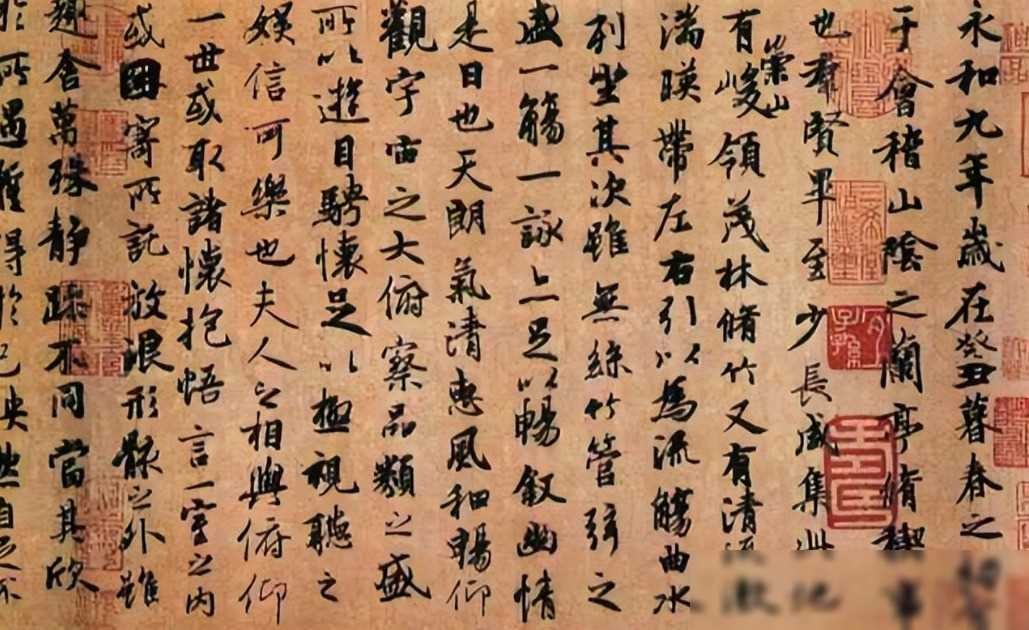 永和九年歲在癸丑暮春之
于會稽山陰之蘭亭脩禊事
也群賢畢至少長咸集此
有崇山峻領茂林脩竹又有清
湍暎帶左右引以為流觴曲水
列坐其次雖無絲竹管弦之
盛一觴一詠亦足以暢敘幽情
是日也天朗氣清惠風和暢仰
觀宇宙之大俯察品類之盛
所以遊目騁懷足以極視聽之
娛信可樂也夫人之相與俯仰
一世或取諸懷抱悟言一室之內
或因寄所託放浪形骸之外雖
趣舍萬殊靜躁不同當其欣
於所遇暫得於己怏然自足不